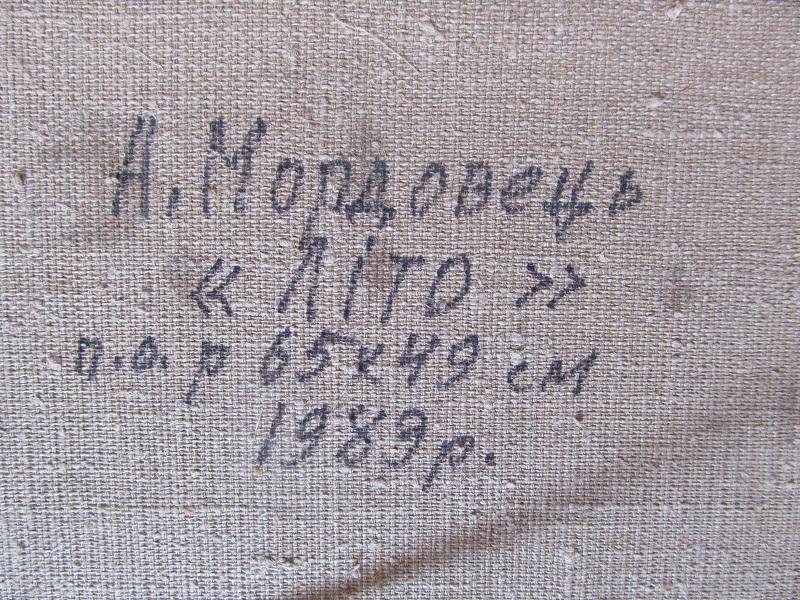 А. Мордовець
« Літо »
п.о. р 65х49 см
1989 р.